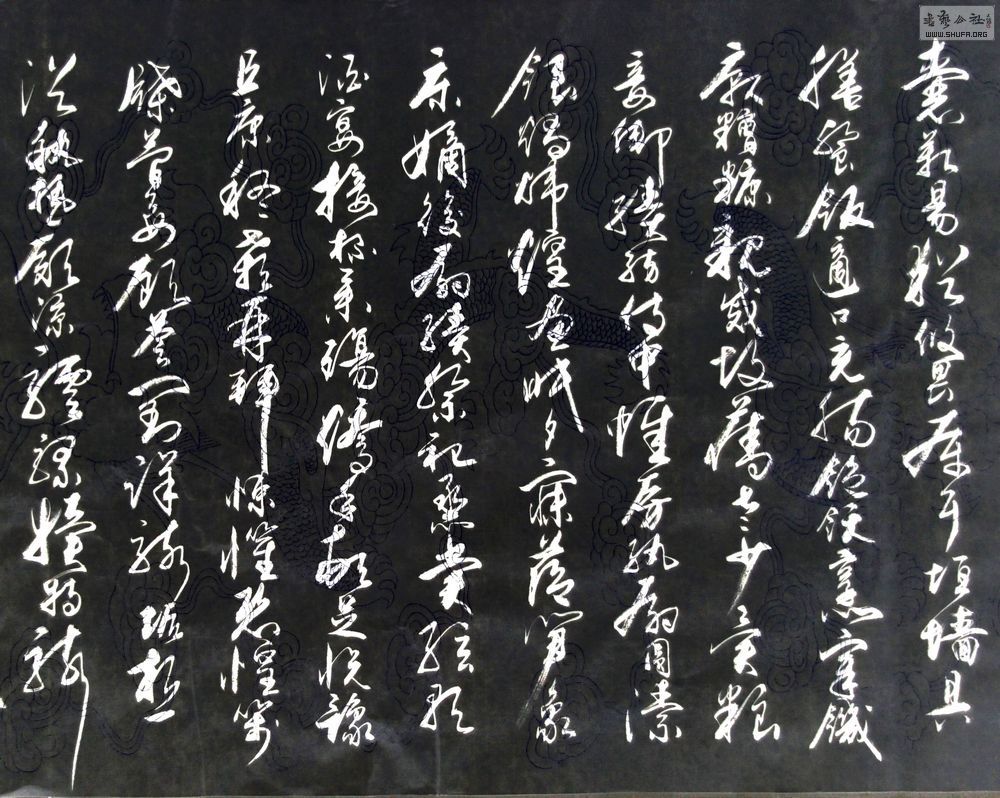 囊箱易輶攸畏屬耳垣墙具
膳飡飯適口充腸飽飫烹宰饑
厭糟糠親戚故舊老少異糧
妾御績紡侍巾帷房紈扇圓潔
銀燭煒煌晝眠夕寐藍笋象
床嫡後嗣續祭祀烝嘗弦歌
酒宴接杯舉觴矯手頓足悅豫
且康稽顙再拜悚懼恐惶箋
牒簡要顧答審詳骸垢想
浴執熱願涼驢騾犢特駭
書藝公社
WWW.SHUFA.ORG